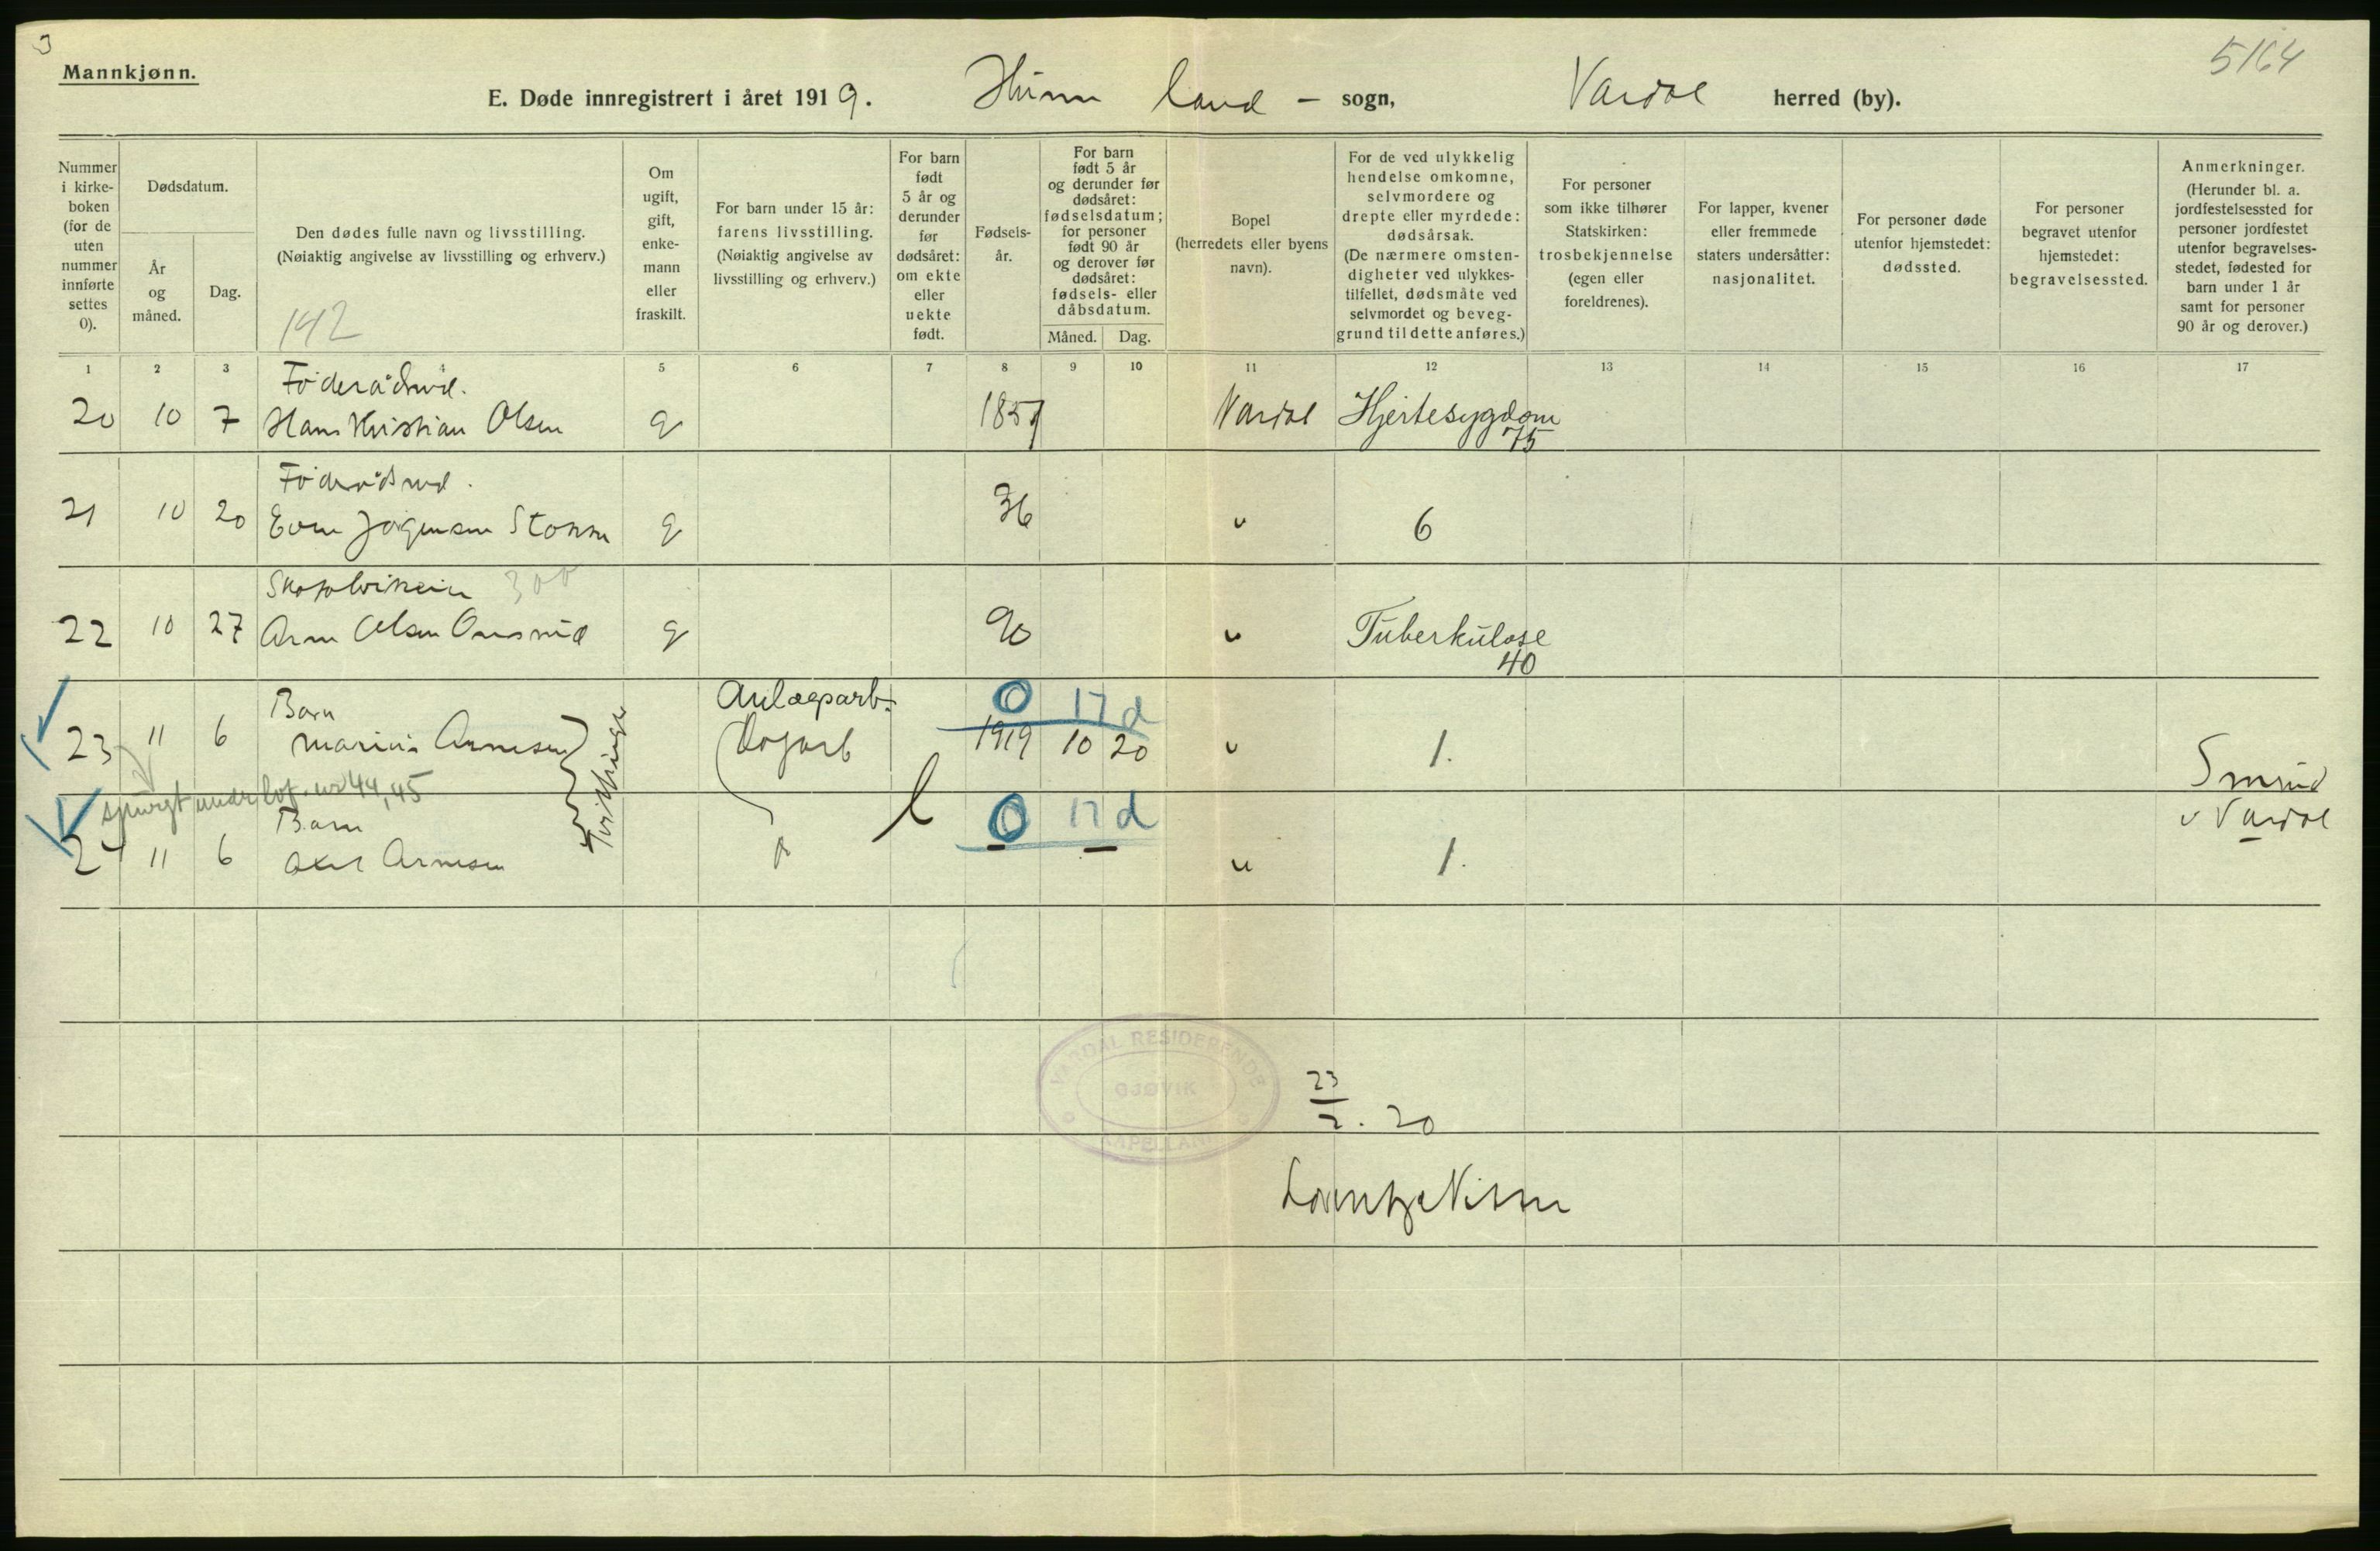 Mannkjønn.
5164
E. Døde innregistrert i året 1919. Hunn land - sogn, Vardal herred (by).
Nummer i kirke-boken (for de uten nummer innførte settes 0).
Dødsdatum.
År og måned.
Dag.
Den dødes fulle navn og livsstilling.
(Nøiaktig angivelse av livsstilling og erhverv.)
142
Om ugift, gift, enke-mann eller fraskilt.
For barn under 15 år: farens livsstilling.
(Nøiaktig angivelse av livsstilling og erhverv.)
For barn født 5 år og derunder før dødsåret: om ekte eller uekte født.
Fødsels-år.
For barn født 5 år og derunder før dødsåret: fødselsdatum; for personer født 90 år og derover før dødsåret: fødsels- eller dåbsdatum.
Måned. Dag.
Bopel (herredets eller byens navn).
For de ved ulykkelig hendelse omkomne, selvmordere og drepte eller myrdede: dødsårsak.
(De nærmere omsten-digheter ved ulykkes-tilfellet, dødsmåte ved selvmordet og beveg-grund til dette anføres.)
For personer som ikke tilhører Statskirken: trosbekjennelse (egen eller foreldrenes).
For lapper, kvener eller fremmede staters undersåtter: nasjonalitet.
For personer døde utenfor hjemstedet: dødssted.
For personer begravet utenfor hjemstedet: begravelsessted.
Anmerkninger.
(Herunder bl. a. jordfestelsessted for personer jordfestet utenfor begravelses-stedet, fødested for barn under 1 år samt for personer 90 år og derover.)
1 2 3 5 6 7 8 9 10 11 12 13 14 15 16 17
Föderådsmd.
20 10 7 Hans Kristian Olsen g Vardal Hjertesygdom
75
Föderådsmd.
21 10 20 Even Jørgensen g 36 " 6
300
22 10 27 Arne Olsen g 90 " Tuberkulose
40
Anlægsarb. 0 17 d
Barn
23 11 6 Marius Arnesen Tvillinger Dagarb 1919 10 20 " 1.
Smrud
spurgt under lof. nr 44, 45
v Vardal
Barn 0 17 d
24 11 6 Axel Arnesen " 1.
VARDAL RESIDERENDE KAPELLANI
GJØVIK
23/2. 20
Lorentz Nissen